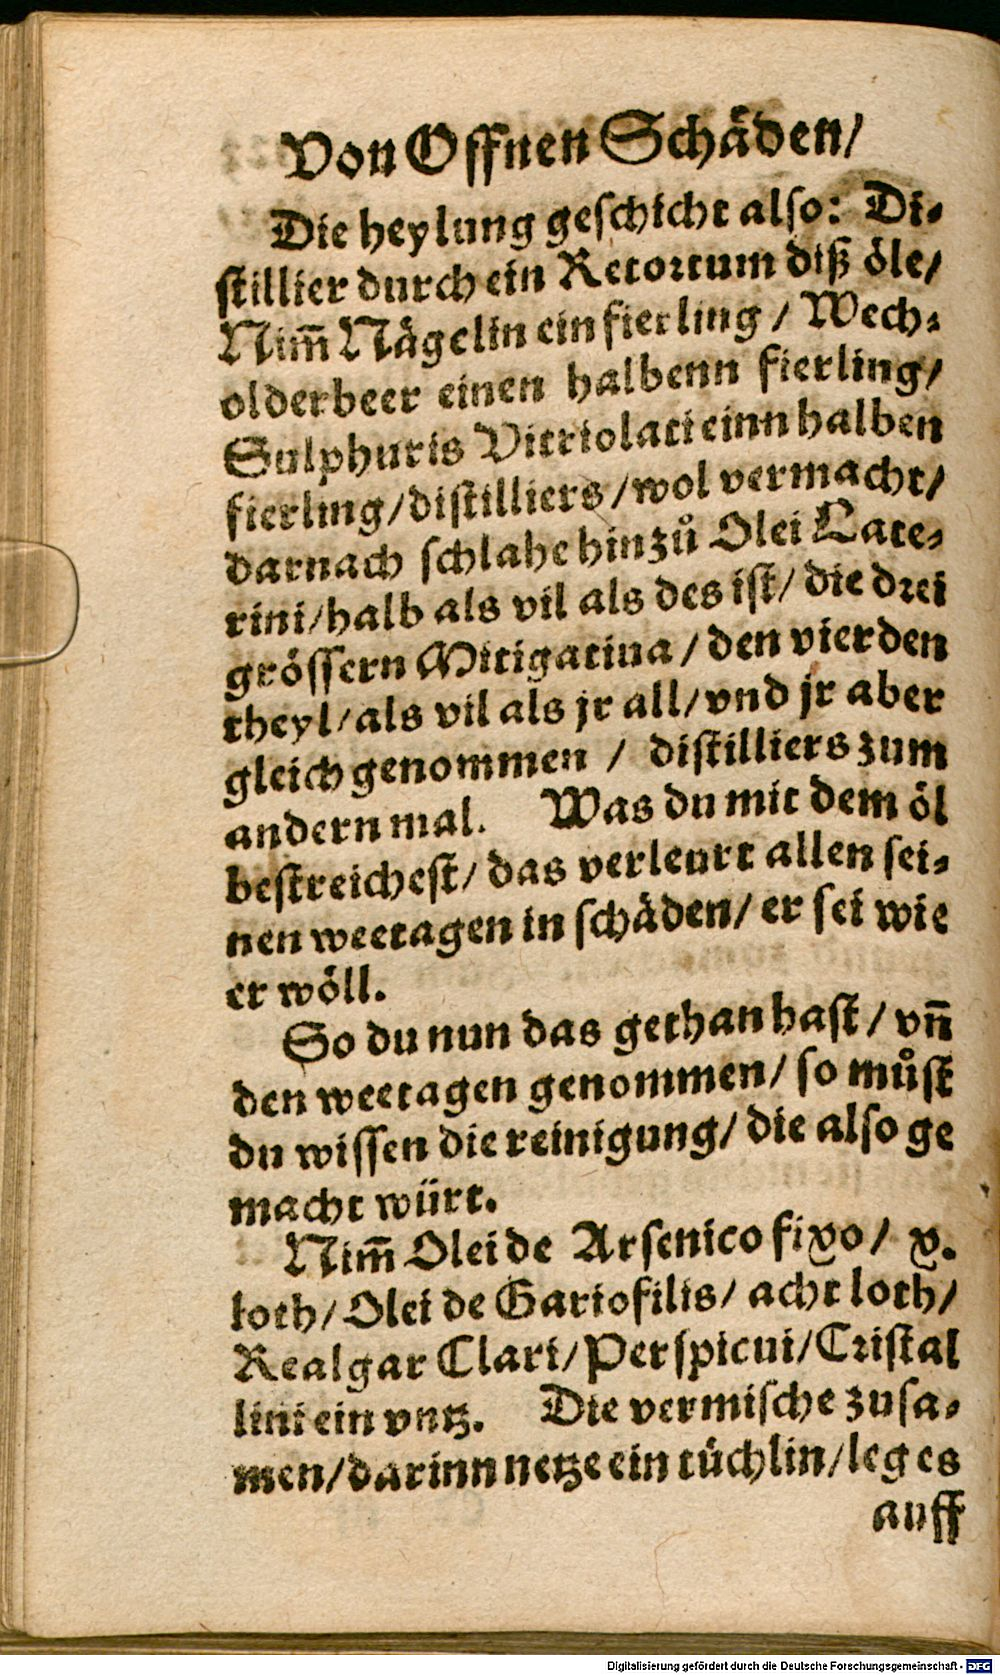 Von Offnen Schäden/
Die heylung geschicht also: Di-
stillier durch ein Retortum diß öle/
Nim̃ Nägelin ein fierling / Wech-
olderbeer einen halbenn fierling/
Sulphuris Vitriolati einn halben
fierling/distilliers/wol vermacht/
darnach schlahe hinzů Olei Late-
rini/halb als vil als des ist/ die drei
grössern Mitigatiua / den vierden
theyl/als vil als jr all/vnd jr aber
gleich genommen / distilliers zum
andern mal. Was du mit dem öl
bestreichest/ das verleurt allen sei-
nen weetagen in schäden/ er sei wie
er wöll.
So du nun das gethan hast / vñ
den weetagen genommen/ so můst
du wissen die reinigung/ die also ge
macht würt.
Nim̃ Olei de Arsenico fixo / x.
loth/Olei de Gariofilis/ acht loth/
Realgar Clari/Perspicui/Cristal
lini ein vntz. Die vermische zusa-
men/darinn netze ein tüchlin/leg es
auff
Digitalisierung gefördert durch die Deutsche Forschungsgemeinschaft - DFG